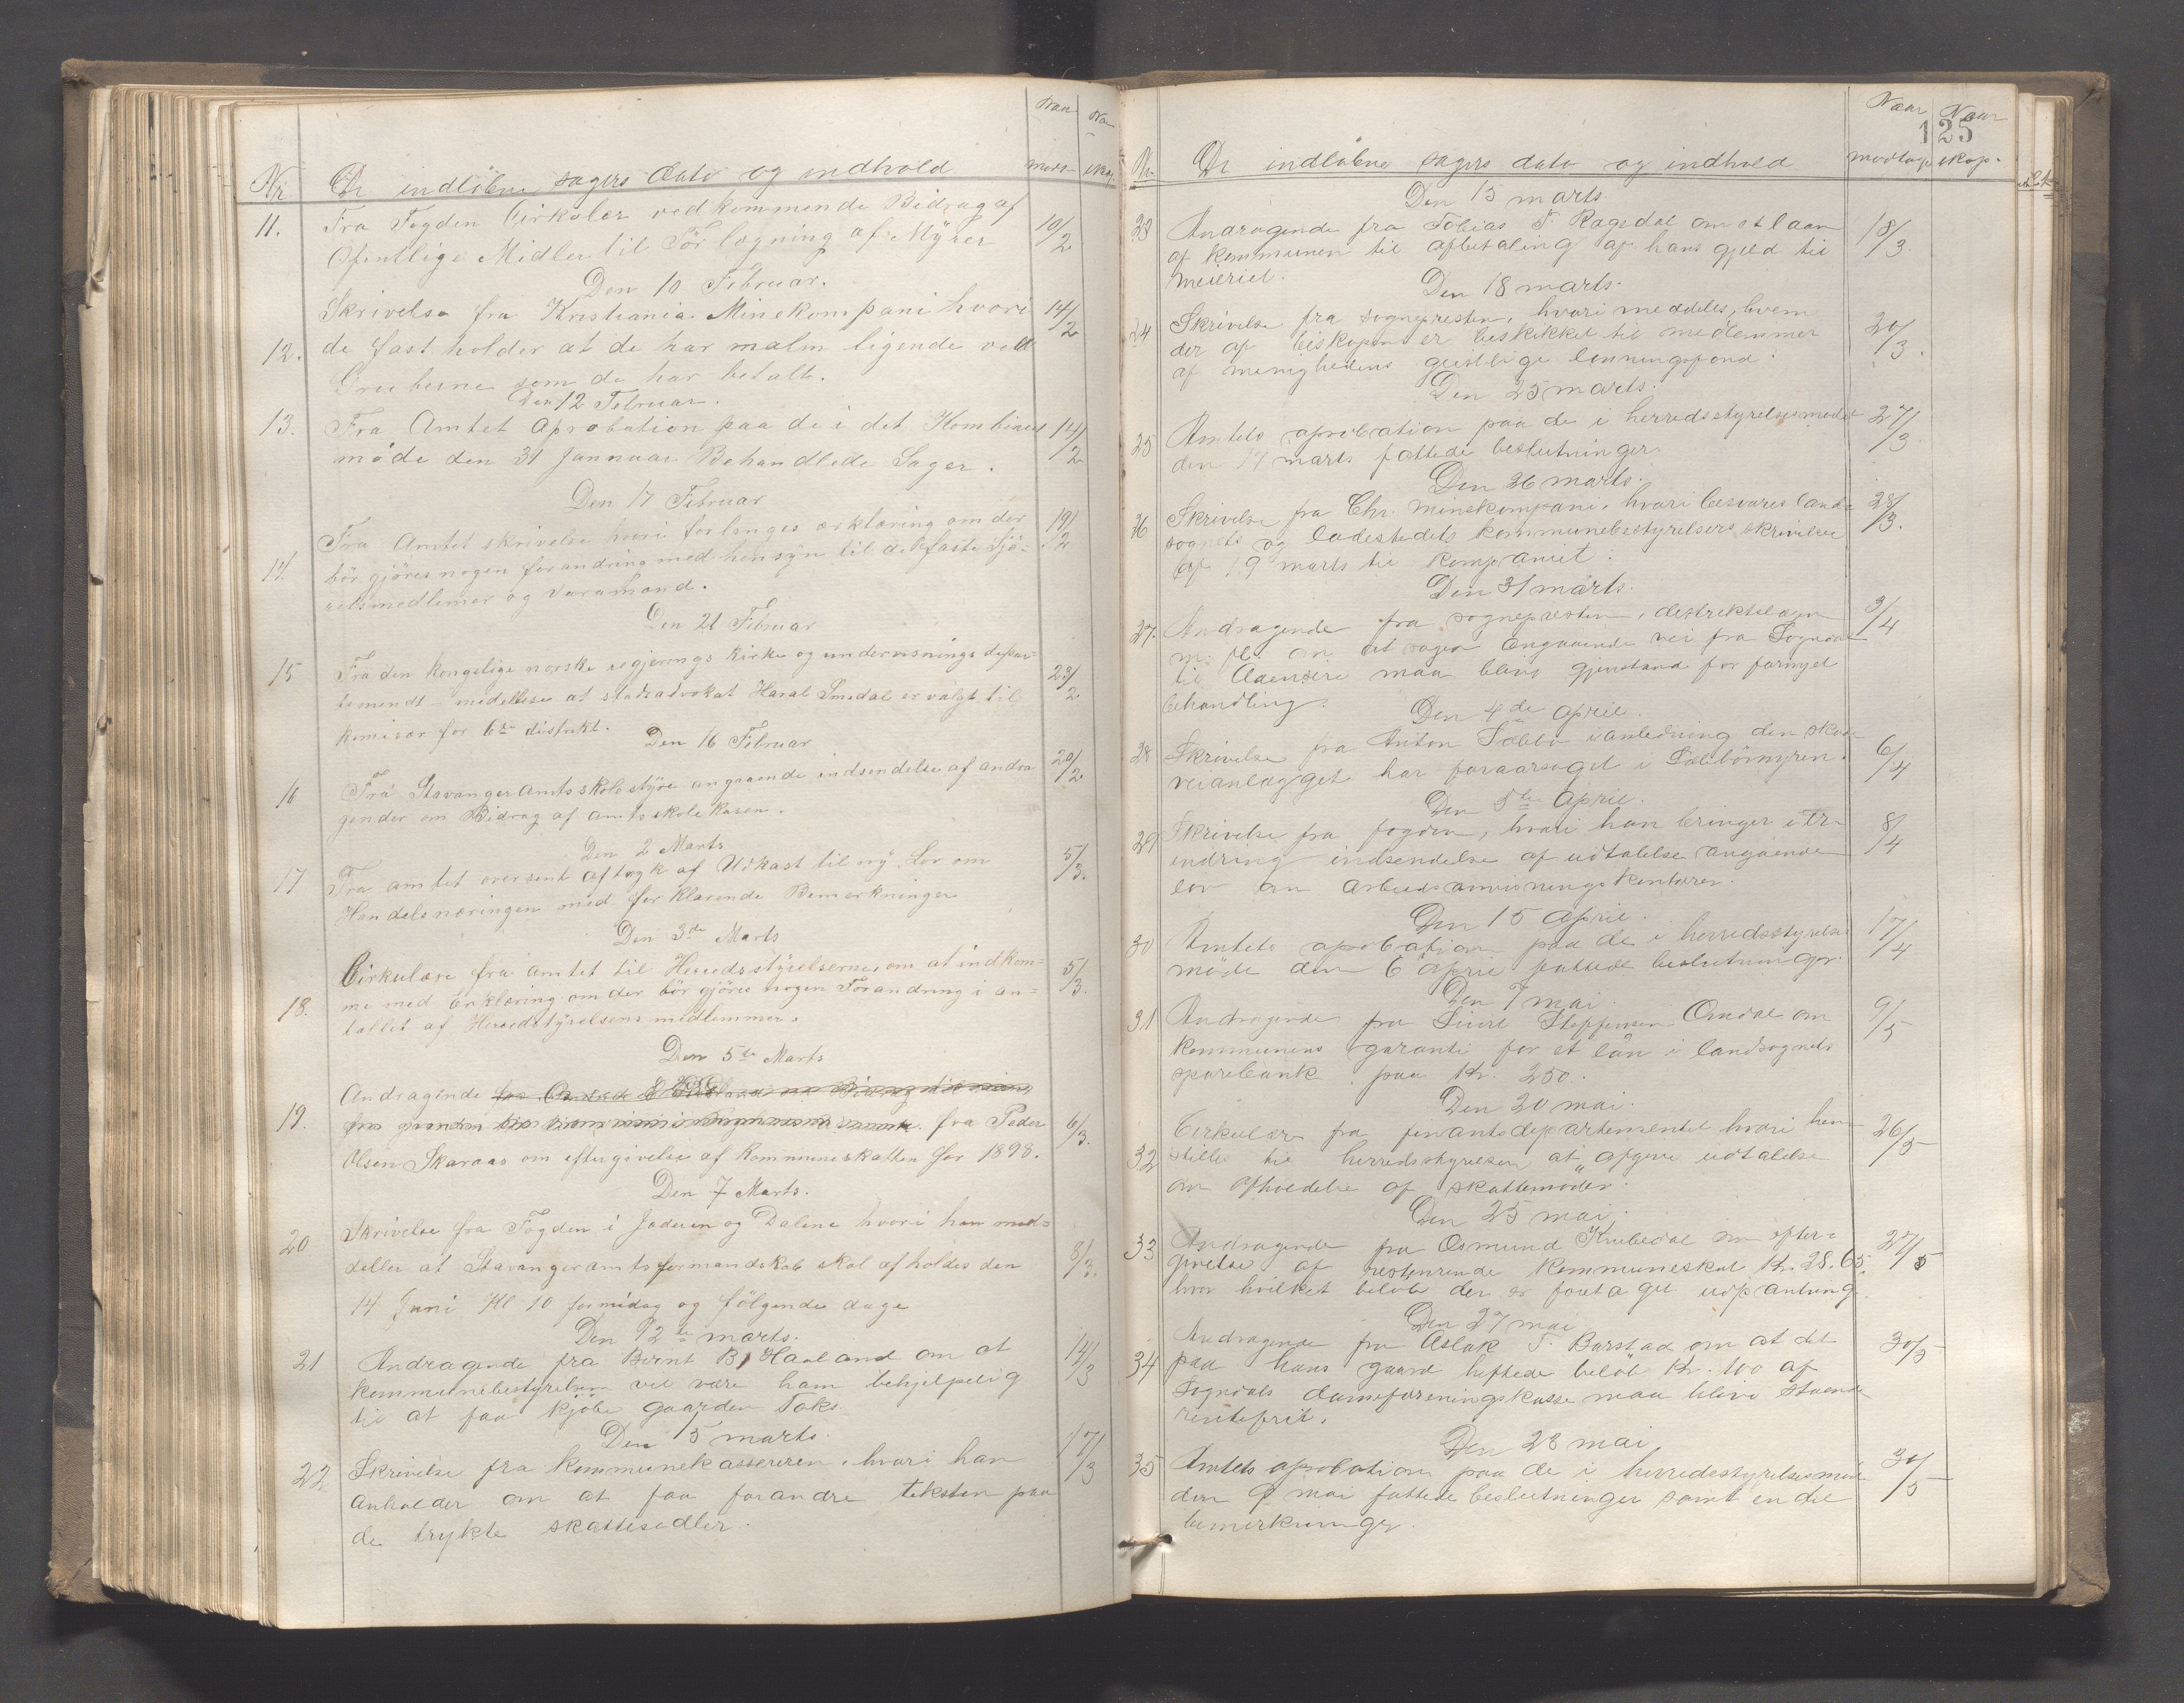 Naar Naar
Nr. De indløbne sagers Dato og indhold modt. exsp.
11. Fra Fogden Cirkulær vedkommende Bidrag af 10/2
Ofentlige Midler til Tör lægning af Myrer
Den 10 Februar.
Skrivelse fra Kristiania Minekompani hvori 14/2
12. de fast holder at de har malm ligende ved
Gruberne som de har betalt.
Den 12 Februar.
13. Fra Amtet Aprobation paa de i det Kombinert 14/2
möde den 31 Jannuar Behandlede Sager.
Den 17 Februar
Fra Amtet skrivelse hvori forlanges erklæring om der 19/2
14. bör gjöres nogen forandring med hensyn til de faste Sjö-
retsmedlemer og Varamænd.
Den 21 Februar
15 Fra den kongelige norske regjerings kirke og undervisnings depar- 23/2
temendt - medelelse at stadsadvokat Haral Smedal er valgt til
komisær for 6te distrikt.
Den 16 Februar
16 Fra Stavanger Amtsskolestyre angaaende indsendelse af andra 20/2
gender om Bidrag af amtsskolekasen.
Den 2 Marts
17 Fra amtet oversent aftryk af Udkast til ny Lov om 5/3.
Handelsnæringen med forklarende Bemerkninger
Den 3de Marts
Cirkulære fra amtet til Herredsstyrelserne, om at indkom= 5/3.
18. me med Erklæring om der bör gjöres nogen Forandring i an=
tallet af Herredstyrelsens medlemmer.
Den 5te Marts
Andragende
19. fra Peder 6/3.
Olsen Skaraas om eftergivelse af Kommuneskatten for 1898.
Den 7 Marts.
20 Skrivelse fra Fogden i Jæderen og Dalene hvori han med= 8/3.
deller at Stavanger amtsformandskab skal afholdes den
14 Juni Kl 10 formidag og fölgende dage
Den 12te marts.
21 Andragende fra Bernt B. Haaland om at 14/3
kommunebestyrelsen vil være ham behjelpelig
til at faa kjöbe gaarden Toks.
Den 15 marts.
22 Skrivelse fra kommunekassereren, hvori han 17/3
anholder om at faa forandre teksten paa
de trykte skattesedler.
Naar Naar
125
Nr. De indløbne sagers dato og indhold modtag. eksp.
Den 15 marts
23 Andragende fra Tobias T. Ragedal om et laan 18/3.
af kommunen til afbetaling af hans gjeld til
meieriet.
Den 18 marts.
24 Skrivelse fra sognepresten, hvori meddeles, hvem 20/3.
der af biskopen er beskikket til medlemmer
af menighedens geistlige lønningsfond.
Den 25 marts.
25 Amtets aprobation paa de i herredsstyrelsesmødet 27/3
den 17 marts fattede beslutninger.
Den 26 marts.
26 Skrivelse fra Chr. Minekompani, hvori besvares land- 28/3.
sognets og ladestedets kommunebestyrelsers skrivelse
af 19 marts til kompaniet.
Den 31 marts.
27. Andragende fra sognepresten, destriktslægen 3/4
m. fl. om at sagen angaaende vei fra Sogndal
til Aaensire maa blive gjenstand for fornyet
behandling.
Den 4de april.
28 Skrivelse fra Anton Sæbbø i anledning den skade 6/4
veianlægget har foraarsaget i Sæbbömyren.
Den 5te April.
29 Skrivelse fra fogden, hvori han bringer i er- 8/4
indring indsendelse af udtalelse angaaende
lov om arbeidsanvisningskontorer.
Den 15 April.
30 Amtets aprobation paa de i herredsstyrelses 17/4
møde den 6 april fattede beslutninger.
Den 7 mai.
31 Andragende fra Sivert Steffensen Omdal om 9/5
kommunens garanti for et lån i landsognets
sparebank paa Kr. 250.
Den 20 mai.
Cirkulær fra finantsdepartementet hvori hen- 26/5
32 stilles til herredsstyrelsen at afgive udtalelse
om afholdelse af skattemøder.
Den 25 mai.
33 Andragende fra Osmund Knubedal om efter= 27/5
givelse af resterende kommuneskat kr. 28.65,
hvor hvilket beløb der er foretaget udpantning.
Den 27 mai
Andragende fra Aslak T. Barstad om at det 30/5
34 paa hans gaard heftede beløb kr. 100 af
Sogndals dameforeningskasse maa blive staaende
rentefrit.
Den 28 mai
35 Amtets aprobation paa de i herredsstyrelsesmøde 30/5
den 9 mai fattede beslutninger samt en del
bemerkninger.